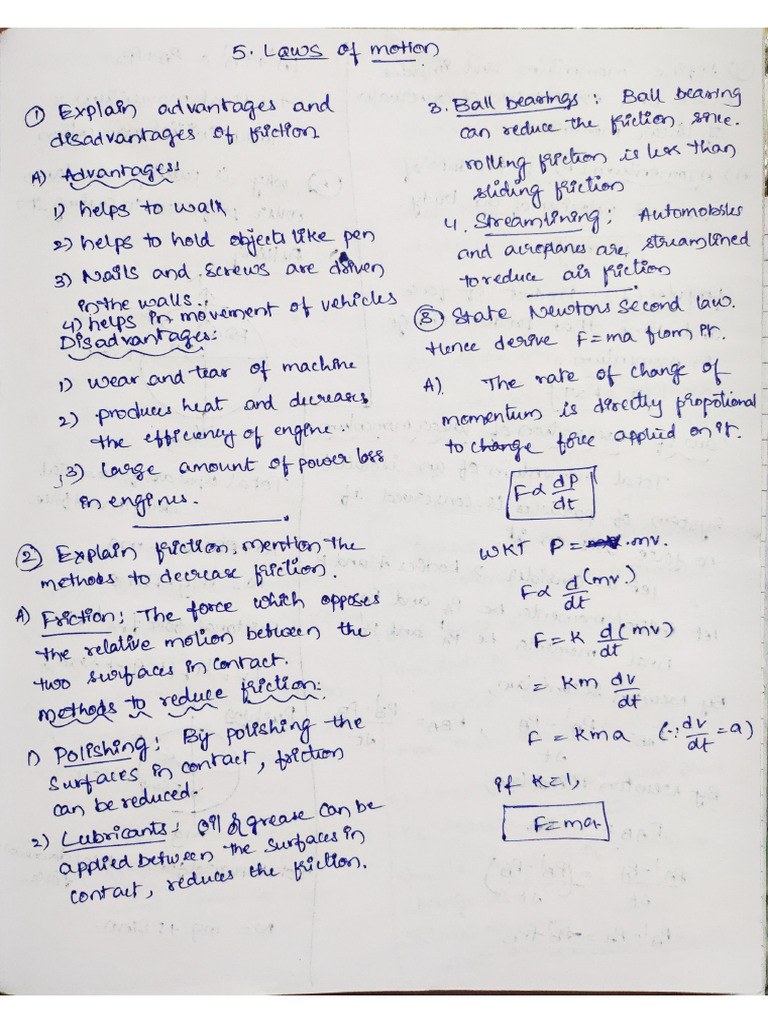 5. Laws of motion
① Explain advantages and
disadvantages of friction.
A) Advantages:
1) helps to walk
2) helps to hold objects like pen
3) Nails and screws are driven
in the walls.
4) helps in movement of vehicles
Disadvantages:
1) wear and tear of machine
2) produces heat and decreases
the efficiency of engine.
3) large amount of power loss
in engines.
② Explain friction, mention the
methods to decrease friction.
A) Friction: The force which opposes
the relative motion between the
two surfaces in contact.
methods to reduce friction:
1) Polishing: By polishing the
surfaces in contact, friction
can be reduced.
2) Lubricants: Oil & grease can be
applied between the surfaces in
contact, reduces the friction.
3. Ball bearings: Ball bearing
can reduce the friction, since.
rolling friction is less than
sliding friction
4. Streamlining: Automobiles
and aeroplanes are streamlined
to reduce air friction
③ State Newtons second law.
Hence derive F=ma from it.
A) The rate of change of
momentum is directly propotional
to change force applied on it.
F∝ dP/dt
WKT P= mv.
F∝ d/dt (mv.)
F=K d(mv)/dt
= Km dv/dt
F = Kma (∵ dv/dt = a)
if K=1,
F=ma.